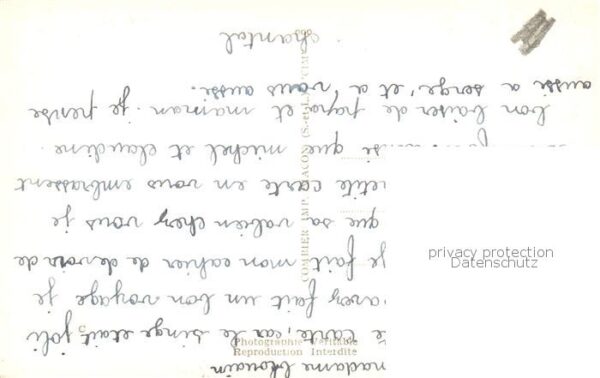 madame
e carte, car le singe etait joli
avez fait un bon voyage je
je fait mon cahier de devoirs de
que sa va bien chez vous je
etite carte en vous embrassent
que michel et claudine.
bon baiser de papa et maman. je pense
aussi a serge, et a vous aussi.
chantal
COMBIER IMP. MACON (S.-&-L.) "CIM"
Photographie Véritable
Reproduction Interdite
privacy protection
Datenschutz